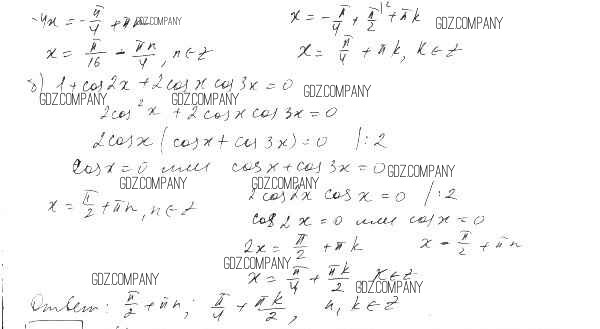 -4x = -π/4 + πn GDZ.COMPANY
x = -π/4 + π/2 |² + πk GDZ.COMPANY
x = π/16 - πn/4, n∈Z
x = π/4 + πk, k∈Z
б) 1+cos2x+2cosx cos3x=0 GDZ.COMPANY
GDZ.COMPANY GDZ.COMPANY
2cos²x + 2cosx cos3x=0
2cosx (cosx+cos3x)=0 /:2
cosx=0 или cosx+cos3x=0 GDZ.COMPANY
GDZ.COMPANY GDZ.COMPANY
x = π/2 + πn, n∈Z
2cos2x cosx=0 /:2
cos2x=0 или cosx=0
2x = π/2 + πk
x = π/2 + πn
GDZ.COMPANY
x = π/4 + πk/2 k∈Z
GDZ.COMPANY GDZ.COMPANY
Ответ: π/2 + πn; π/4 + πk/2, n, k∈Z